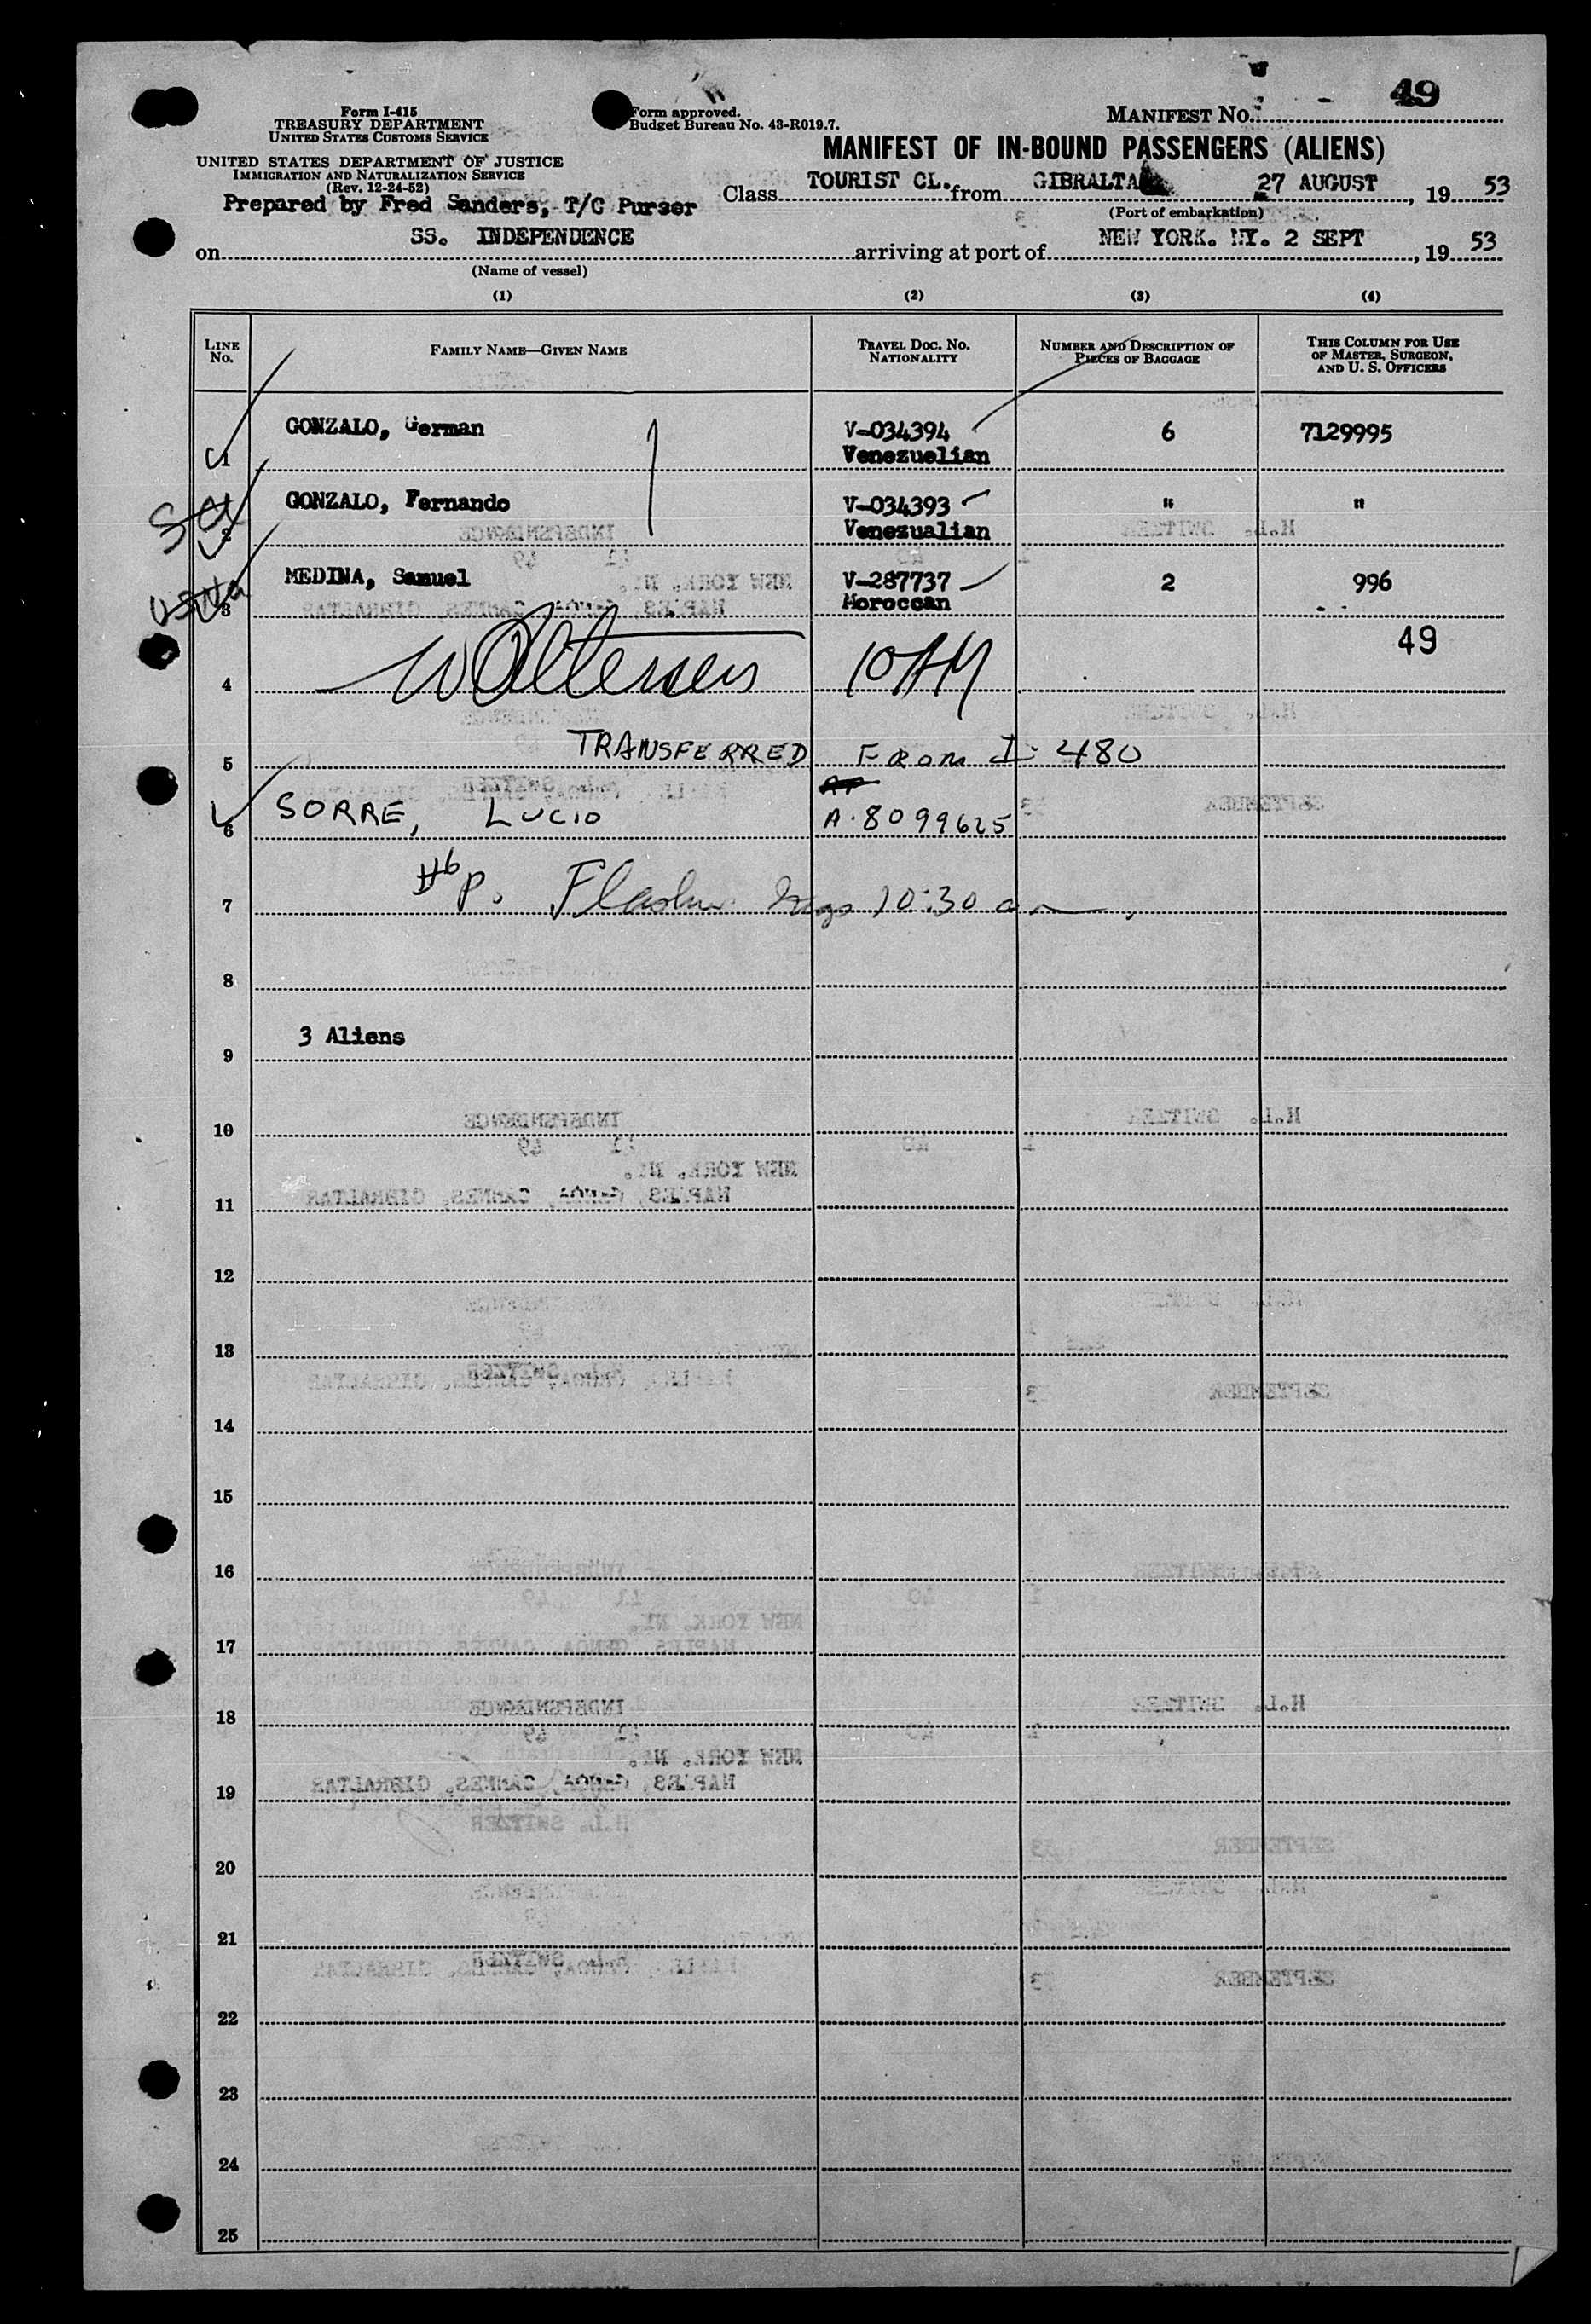 49
Form I-415
TREASURY DEPARTMENT
UNITED STATES CUSTOMS SERVICE
UNITED STATES DEPARTMENT OF JUSTICE
IMMIGRATION AND NATURALIZATION SERVICE
(Rev. 12-24-52)
Prepared by Fred Sanders, T/C Purser
Form approved.
Budget Bureau No. 43-R019.7.
MANIFEST NO.
MANIFEST OF IN-BOUND PASSENGERS (ALIENS)
Class TOURIST CL. from GIBRALTA 27 AUGUST, 19 53
(Port of embarkation)
on SS. INDEPENDENCE arriving at port of NEW YORK. NY. 2 SEPT, 19 53
(Name of vessel)
(1) (2) (3) (4)
LINE NO. FAMILY NAME—GIVEN NAME TRAVEL DOC. NO. NATIONALITY NUMBER AND DESCRIPTION OF PIECES OF BAGGAGE THIS COLUMN FOR USE OF MASTER, SURGEON, AND U. S. OFFICERS
1 GONZALO, German V-034394 Venezuelian 6 7129995
2 GONZALO, Fernando V-034393 Venezualian " "
3 MEDINA, Samuel V-287737 Moroccan 2 996
49
4 10AM
5 TRANSFERRED From I-480
6 SORRE, LUCIO A-8099625
7 #6 P. 10:30 am
8
3 Aliens
9
10
11
12
13
14
15
16
17
18
19
20
21
22
23
24
25